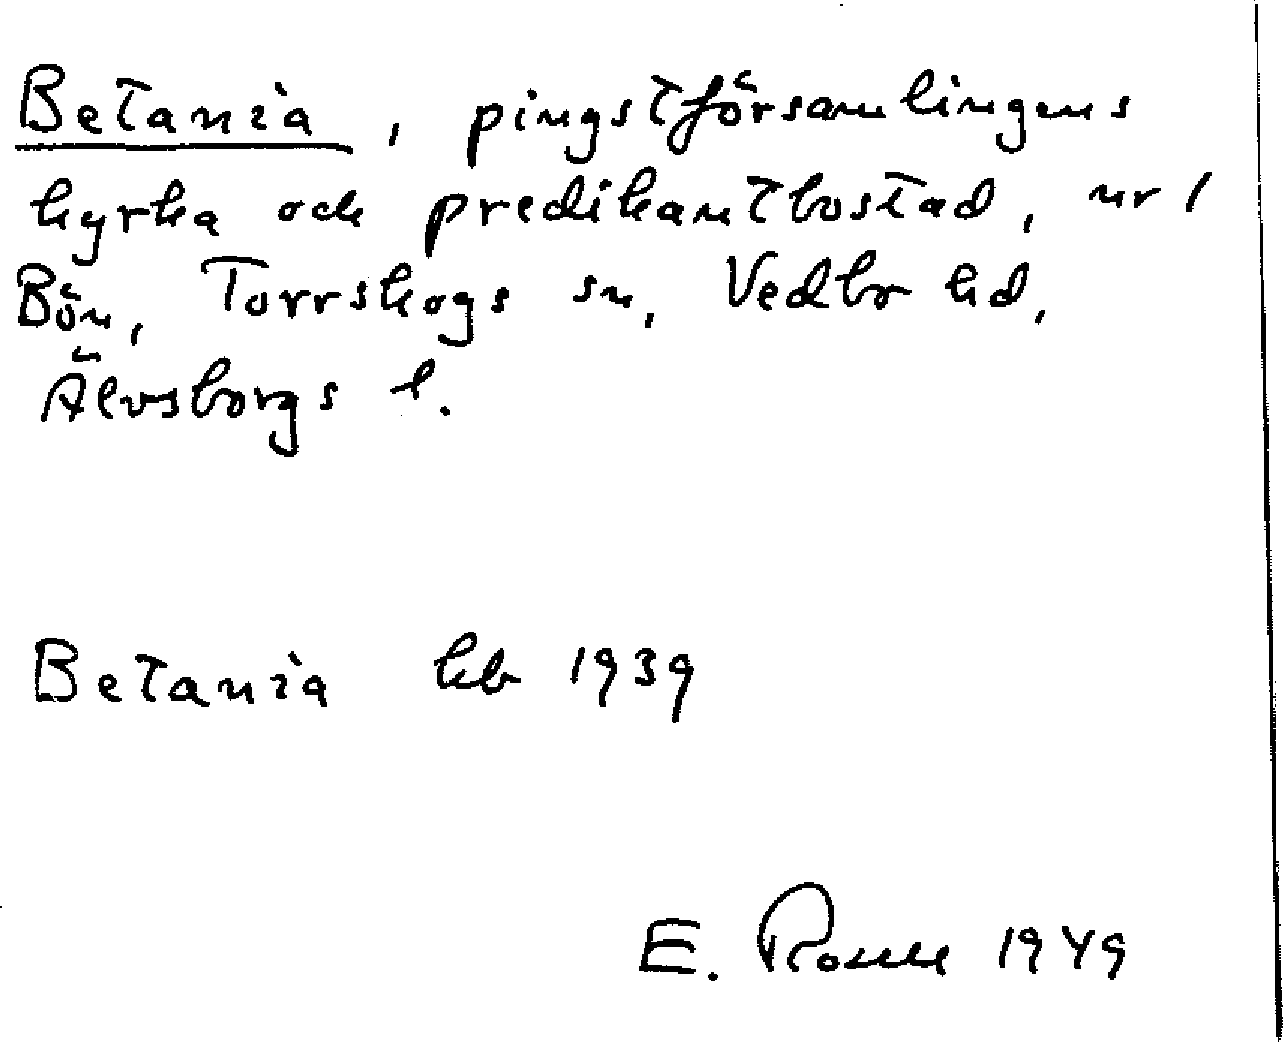 Betania, pingstförsamlingens
kyrka och predikantbostad, nr 1
Bön, Torrskogs sn, Vedbo hd,
Älvsborgs l.
Betania kb 1939
E. 1949